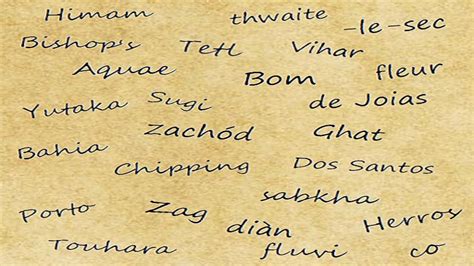 Himam thwaite -le-sec
Bishop's Tetl Vihar
Aquae Bom fleur
Yutaka Sugi de Joias
Bahia Zachód Ghat
Chipping Dos Santos
Porto Zag sabkha
Touhara diàn fluvi Herros co